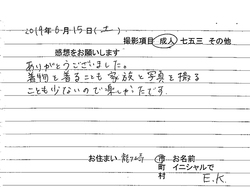 2019年6月15日(土)
撮影項目 成人 七五三 その他
感想をお願いします
ありがとうございました。
着物を着ることも家族と写真を撮る
ことも少ないので楽しかったです。
お住まい 龍ヶ崎 市 お名前
町 イニシャルで
村 E.K.